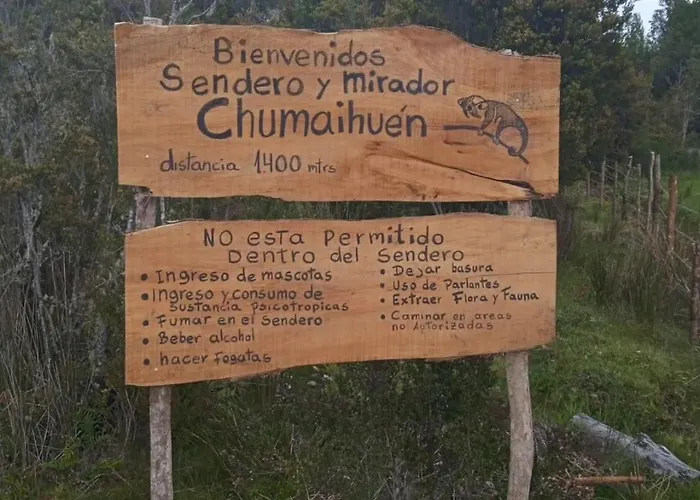 Bienvenidos
Sendero y mirador
Chumaihuén
distancia 1.400 mtrs
No esta Permitido
Dentro del Sendero
• Ingreso de mascotas
• Ingreso y consumo de
Sustancia psicotropicas
• Fumar en el Sendero
• Beber alcohol
• hacer Fogatas
• Dejar basura
• Uso de Parlantes
• Extraer Flora y Fauna
• Caminar en areas
no Autorizadas